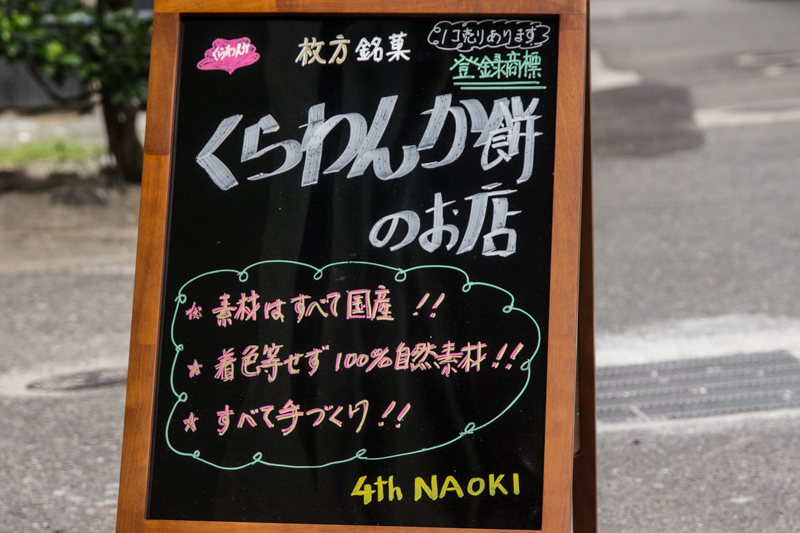 くらわんか
枚方銘菓
1コ売りあります
登録商標
くらわんか餅
のお店
☆ 素材はすべて国産 !!
☆ 着色等せず 100%自然素材!!
☆ すべて手づくり!!
4th NAOKI